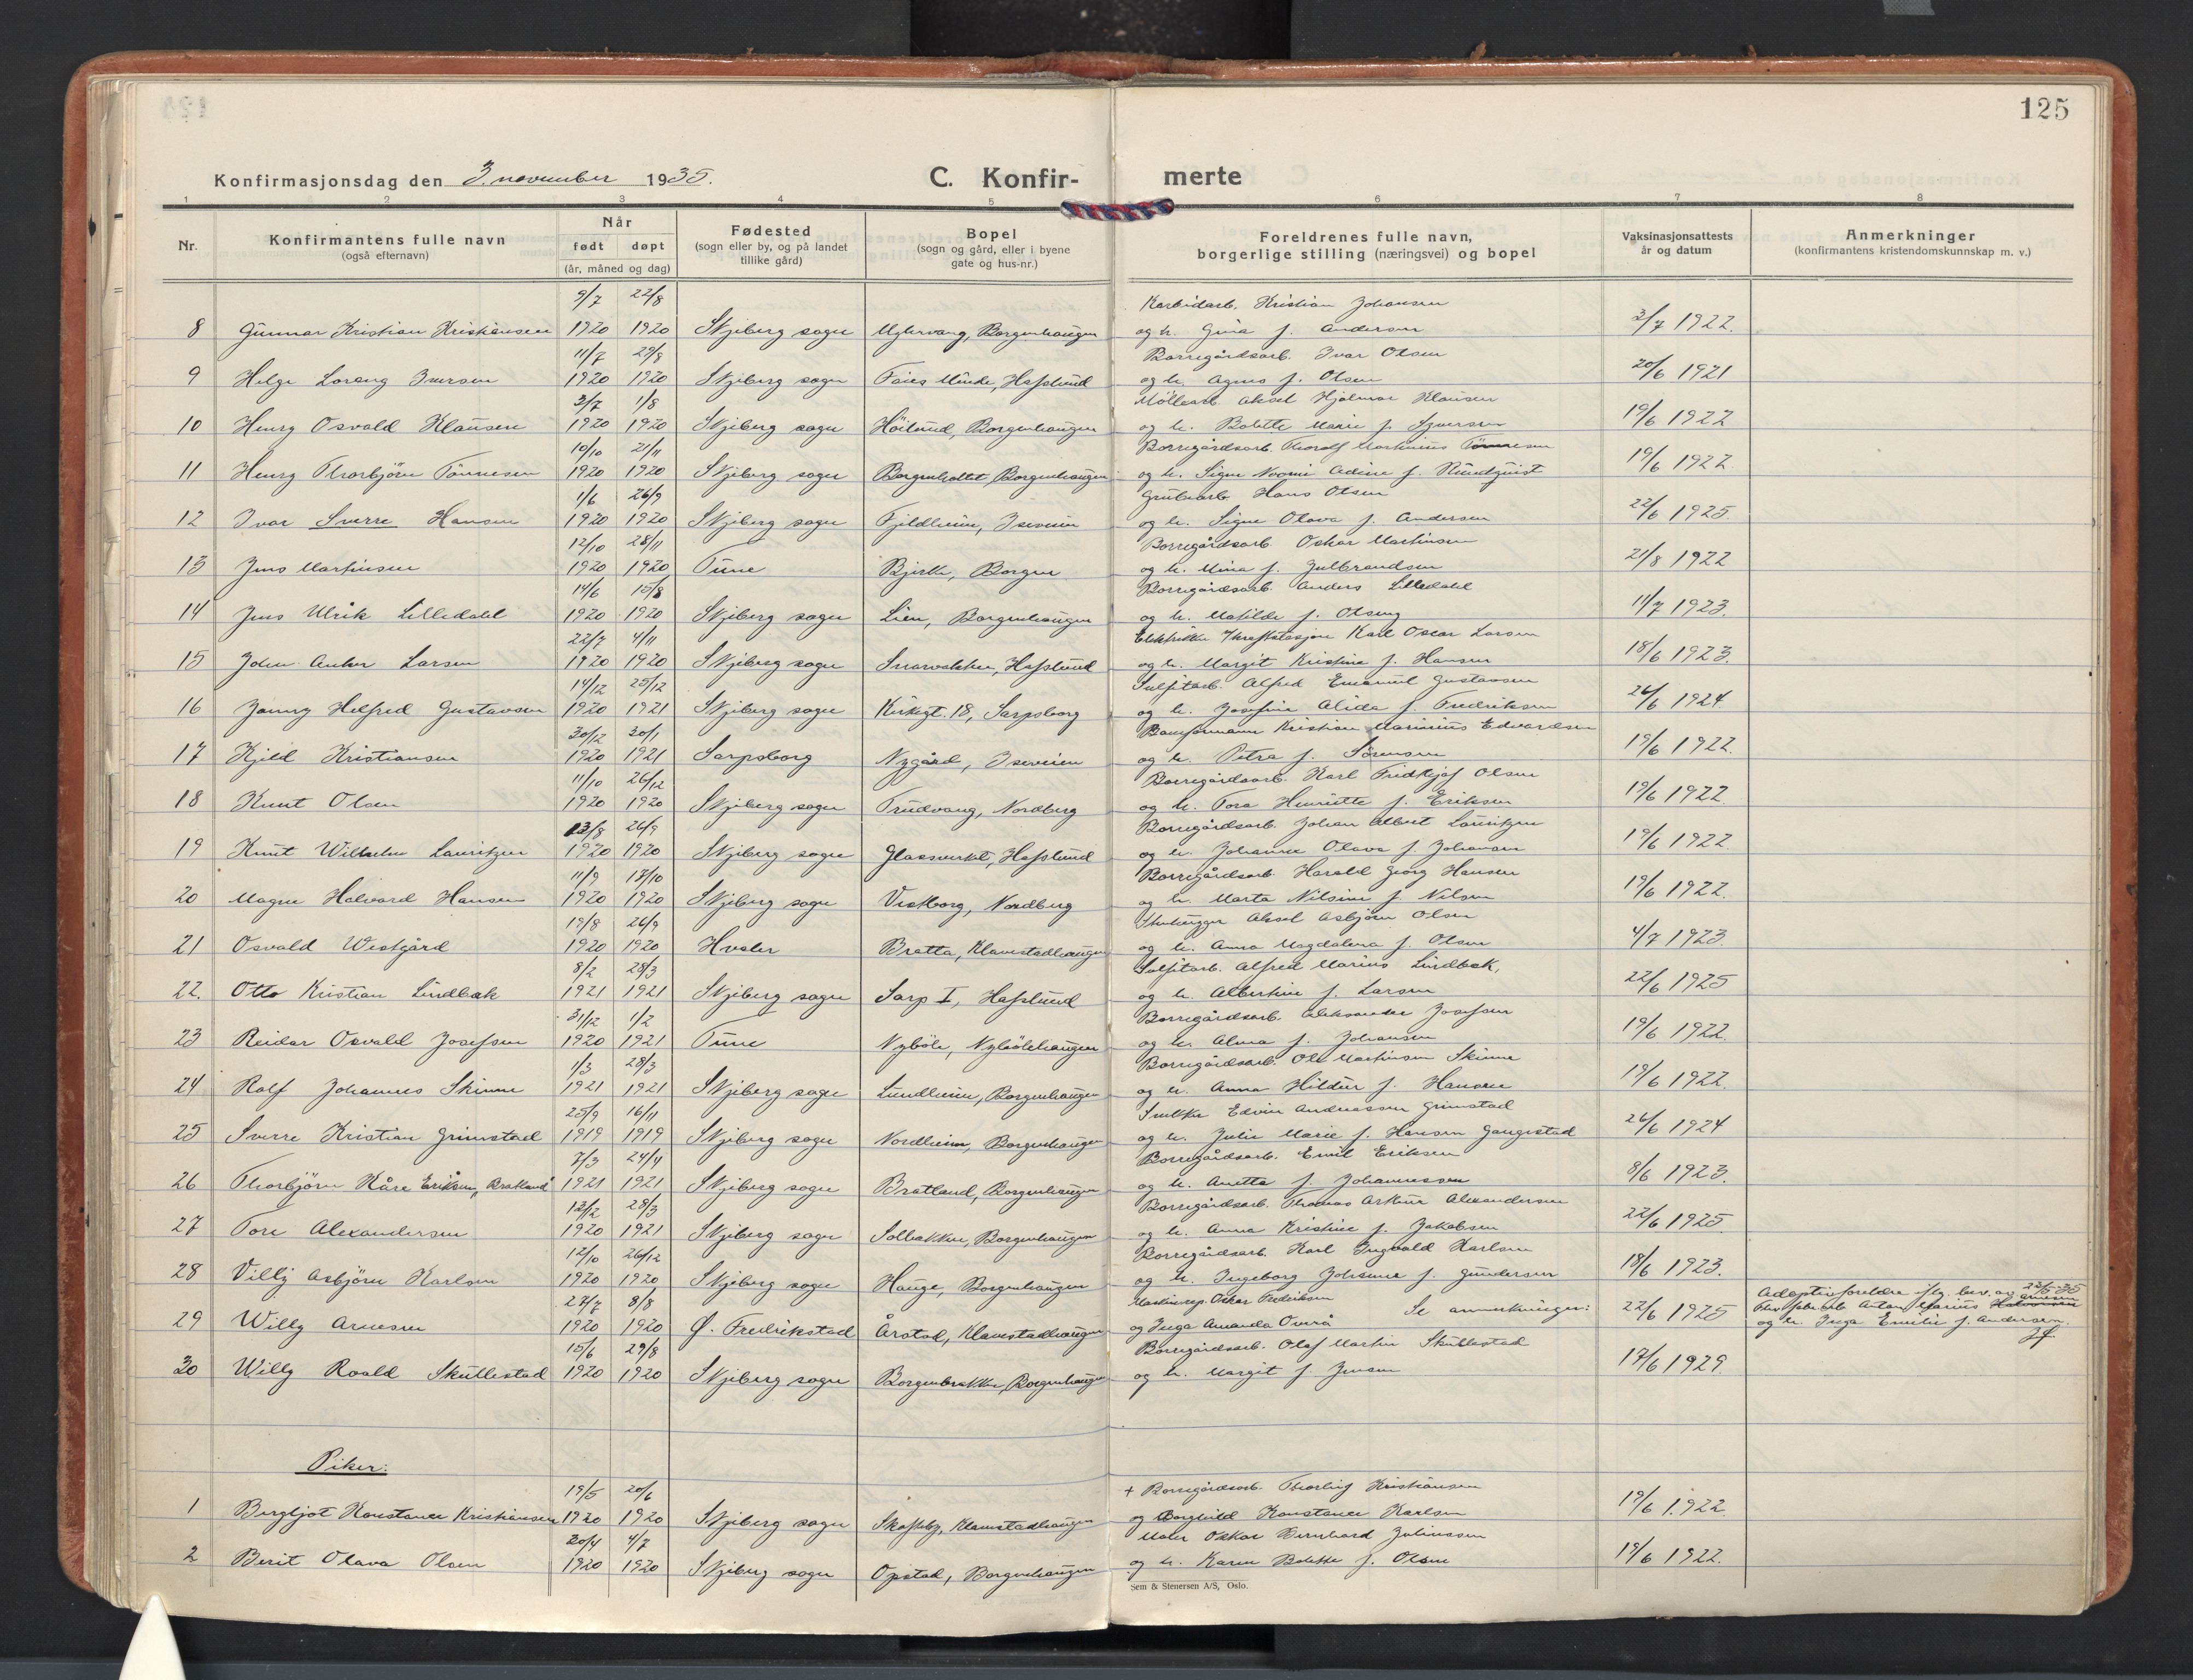 125
Konfirmasjonsdag den 3. november 1935.
C. Konfir- merte
1 2 3 4 5 6 7 8
Nr.
Konfirmantens fulle navn
(også efternavn)
Når
født døpt
(år, måned og dag)
Fødested
(sogn eller by, og på landet
tillike gård)
Bopel
(sogn og gård, eller i byene
gate og hus-nr.)
Foreldrenes fulle navn,
borgerlige stilling (næringsvei) og bopel
Vaksinasjonsattests
år og datum
Anmerkninger
(konfirmantens kristendomskunnskap m. v.)
9/7 22/8 Karbidarb. Kristian Johansen
8 Gunnar Kristian Kristiansen 1920 1920 Skjeberg sogn Borgenhaugen og h. Gina f. Andersen 3/7 1922.
11/7 29/8 Borregårdsarb. Ivar Olsen
9 Helge Loreng Iversen 1920 1920 Skjeberg sogn Minde, Hafslund og h. Agnes f. Olsen 20/6 1921
3/7 1/8 Møllearb. Aksel Hjalmar Klausen
10 Henry Osvald Klausen 1920 1920 Skjeberg sogn Höilund, Borgenhaugen og h. Bolette Marie f. Syversen 19/6 1922
10/10 21/11 Borregårdsarb. Thorolf Martinius Tönnesen
11 Henry Thorbjörn Tönnesen 1920 1920 Skjeberg sogn Borgenholtet, Borgenhaugen og h. Signe Noomi Adine f. Rundquist 19/6 1922
1/6 26/9 Grubearb. Hans Olsen
12 Ivar Sverre Hansen 1920 1920 Skjeberg sogn Fjeldheim, Iseveien og h. Signe Olava f. Andersen 22/6 1925.
12/10 28/11 Borregårdsarb. Oskar Martinsen
13 Jens Martinsen 1920 1920 Tune Bjerke, Borgen og h. Mina f. Gulbrandsen 21/8 1922
14/6 15/8 Borregårdsarb. Anders Lilledahl
14 Jens Ulrik Lilledahl 1920 1920 Skjeberg sogn Lien, Borgenhaugen og h. Matilde f. Olseng 11/7 1923.
22/7 4/11 Karl Oscar Larsen
15 John Anker Larsen 1920 1920 Skjeberg sogn Hafslund og h. Margit Kristine f. Hansen 18/6 1923.
14/12 25/12 Sulfitarb. Alfred Emanuel Gustavsen
16 Jonny Helfred Gustavsen 1920 1921 Skjeberg sogn Kirkegt. 18, Sarpsborg og h. Josefine Alida f. Fredriksen 26/6 1924
30/12 30/1 Kristian Marinius Edvardsen
17 Kjeld Kristiansen 1920 1921 Sarpsborg Nygård, Iseveien og h. Petra f. Sörensen 19/6 1922.
11/10 26/12 Borregårdsarb. Karl Fridtjof Olsen
18 Knut Olsen 1920 1920 Skjeberg sogn Trudvang, Nordberg og h. Tora Henriette f. Eriksen 19/6 1922.
13/8 26/9 Borregårdsarb. Johan Albert Lauritzen
19 Knut Wilhelm Lauritzen 1920 1920 Skjeberg sogn Glassverket, Hafslund og h. Johanne Olava f. Johansen 19/6 1922.
11/9 17/10 Borregårdsarb. Harald Georg Hansen
20 Magne Halvard Hansen 1920 1920 Skjeberg sogn Nordberg og h. Marta Nilsine f. Nilsen 19/6 1922.
19/8 26/9 Stenhugger Aksel Asbjörn Olsen
21 Osvald Westgård 1920 1920 Hvaler Bratta, Klavestadhaugen og h. Anna Magdalena f. Olsen 4/7 1923.
8/2 28/3 Sulfitarb. Alfred Marius Lindbæk,
22. Otto Kristian Lindbæk 1921 1921 Skjeberg sogn Sarp I, Hafslund og h. Albertine f. Larsen 22/6 1925
31/12 1/2 Borregårdsarb. Aleksander Josefsen
23 Reidar Osvald Josefsen 1920 1921 Tune Nyböle, Nybölehaugen og h. Alma f. Johansen 19/6 1922.
1/3 28/3 Borregårdsarb. Ole Martinsen Skinne
24 Rolf Johannes Skinne 1921 1921 Skjeberg sogn Lundheim, Borgenhaugen og h. Anna Hildur f. Hansen 19/6 1922.
25/9 16/11 Snekker Edvin Andreassen Grimstad
25 Sverre Kristian Grimstad 1919 1919 Skjeberg sogn Nordheim, Borgenhaugen og h. Julie Marie f. Hansen Gangestad 26/6 1924
7/3 24/4 Borregårdsarb. Emil Eriksen
26 Thorbjörn Kåre Eriksen "Bratland" 1921 1921 Skjeberg sogn Bratland, Borgenhaugen og h. Anetta f. Johannessen 8/6 1923.
12/2 28/3 Borregårdsarb. Thomas Artur Alexandersen
27 Tore Alexandersen 1920 1921 Skjeberg sogn Solbakken, Borgenhaugen og h. Anna Kristine f. Jakobsen 22/6 1925.
12/10 26/12 Borregårdsarb. Karl Ingvald Karlsen
28 Villy Asbjörn Karlsen 1920 1920 Skjeberg sogn Hauge, Borgenhaugen og h. Ingeborg Johanne f. Gundersen 18/6 1923.
27/7 8/8 Maskinrep. Oskar Fredriksen Se anmerkninger: Adoptivforeldre iflg. bev. av 22/5-35
29 Willy Arnesen 1920 1920 Ø. Fredrikstad Årstad, Klavestadhaugen og Inga Amanda 22/6 1925 Anton Marius Arnesen
og h. Inga Emilie f. Andersen.
15/6 29/8 Borregårdsarb. Olaf Martin Skullestad
30 Willy Roald Skullestad 1920 1920 Skjeberg sogn Borgenbrakke, Borgenhaugen og h. Margit f. Jensen 17/6 1929.
Piker:
19/5 20/6 + Borregårdsarb. Thorleif Kristiansen
1 Bergljot Konstance Kristiansen 1920 1920 Skjeberg sogn Klavestadhaugen og Borghild Konstance Karlsen 19/6 1922
20/4 4/7 Maler Oskar Bernhard Juliussen
2 Berit Olava Olsen 1920 1920 Skjeberg sogn Opstad, Borgenhaugen og h. Karen Bolette f. Olsen 19/6 1922.
Sem & Stenersen A/S, Oslo.